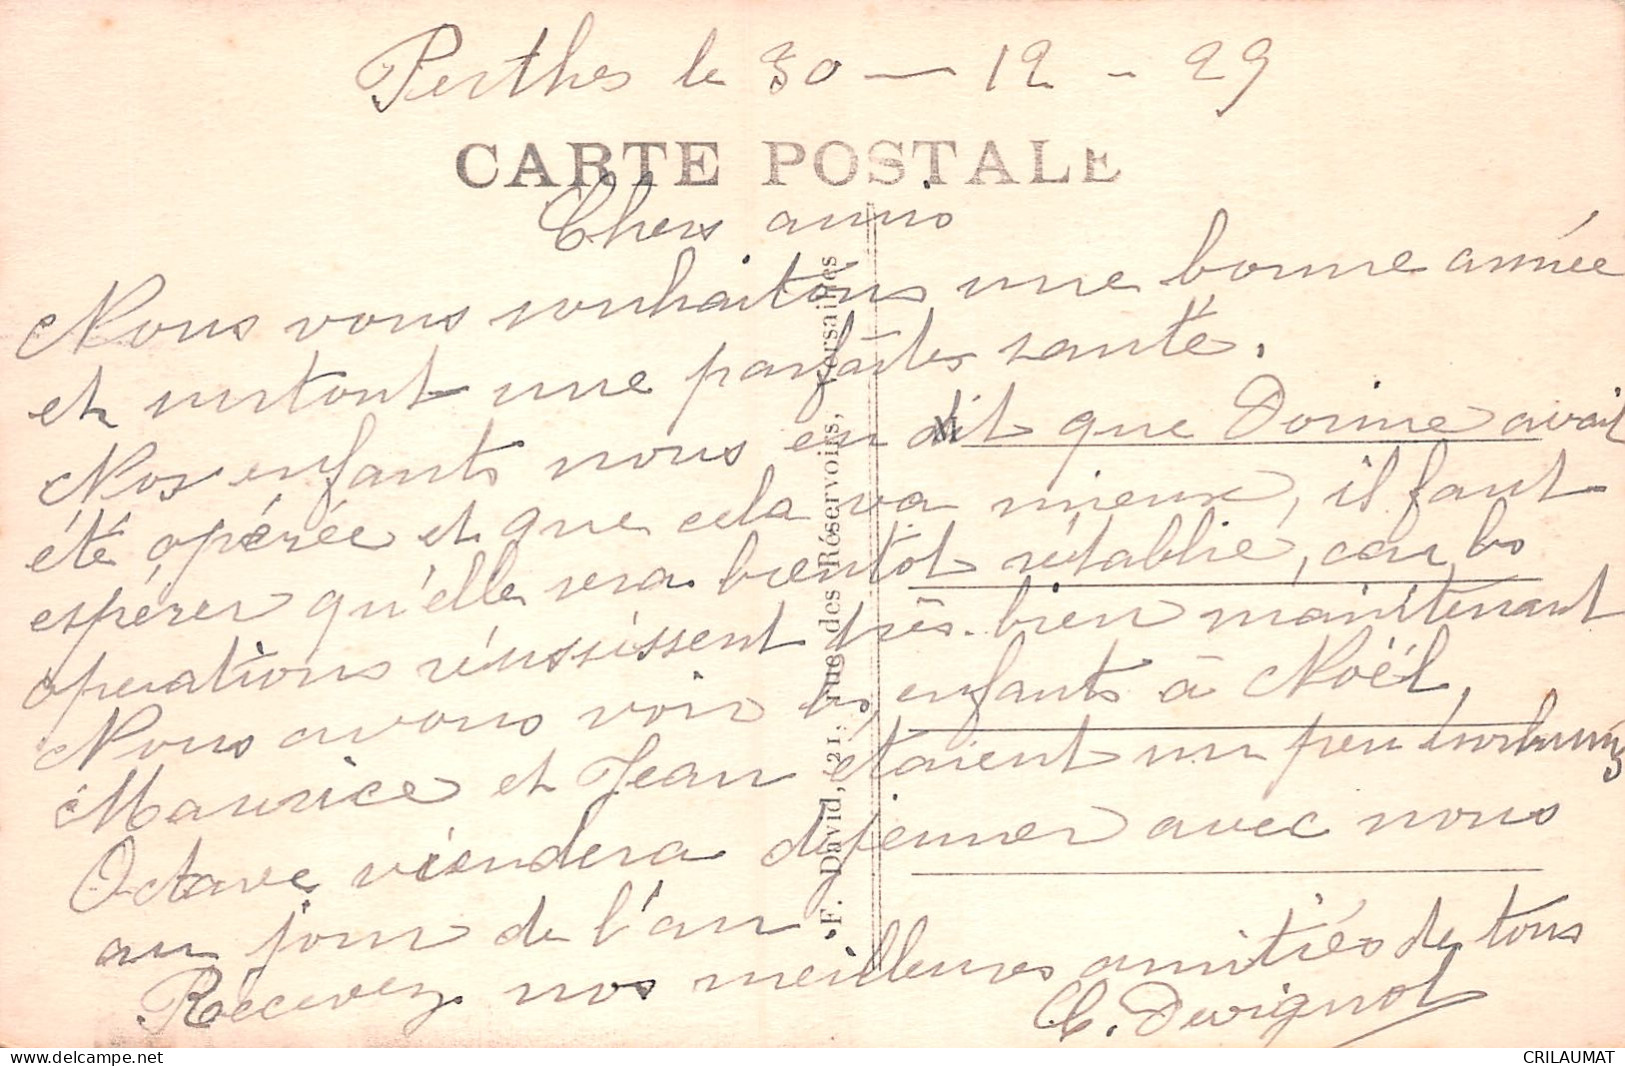 Perthes le 30 — 12 - 29
CARTE POSTALE
Chers amis
Nous vous souhaitons une bonne année
et surtout une parfaites santé.
Nos enfants nous en dit que Dorine avait
été opérée et que cela va mieux, il faut
espérer qu'elle sera bientot rétablie, car les
opérations réussissent très-bien maintenant
Nous avons voir les enfants à Noël,
Maurice et Jean étaient un peu
Octave viendera déjeuner avec nous
au jour de l'an.
Recevez nos meilleures amitiés de tous
C. Devignot
F. David, 21, rue des Réservoirs, Versailles
delcampe.net
CRILAUMAT